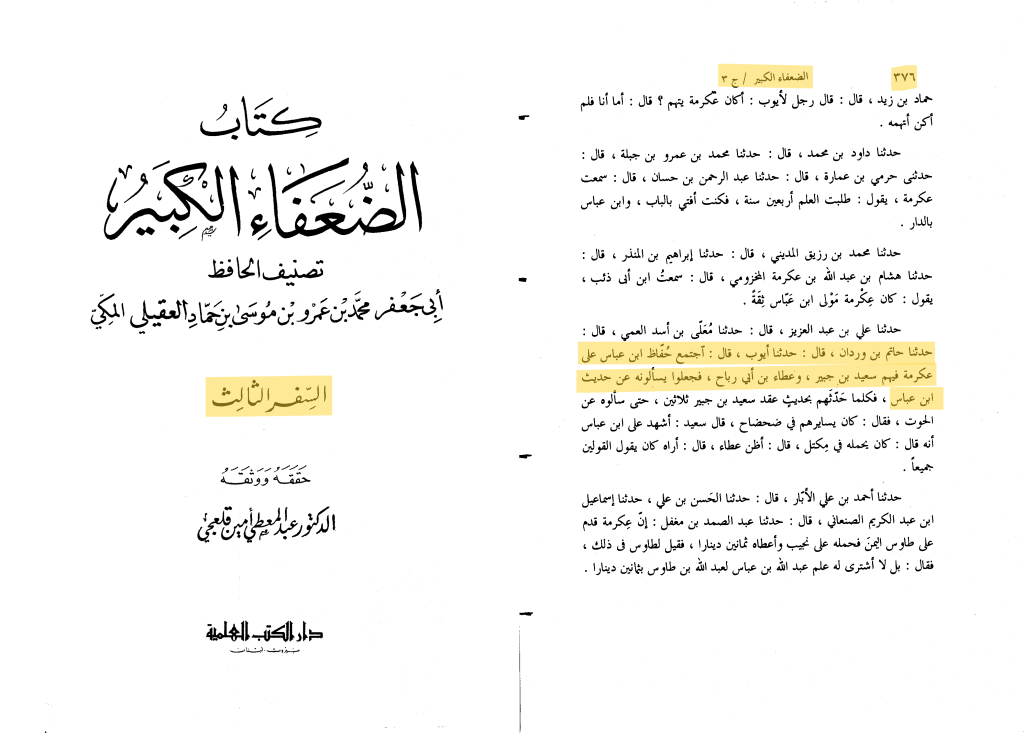 كِتَابُ
الضُّعَفَاءِ الْكَبِيرُ
تصنيف الحافظ
أبي جعفر محمد بن عمرو بن موسى بن حماد العقيلي المكي
السفر الثالث
حَقَّقَهُ وَوَثَّقَهُ
الدكتور عبد المعطي أمين قلعجي
دار الكتب العلمية
بيروت - لبنان
٣٧٦ الضعفاء الكبير / ج ٣
حماد بن زيد ، قال : قال رجل لأيوب : أكان عكرمة يتهم ؟ قال : أما أنا فلم
أكن أتهمه .
حدثنا داود بن محمد ، قال : حدثنا محمد بن عمرو بن جبلة ، قال :
حدثنى حرمي بن عمارة ، قال : حدثنا عبد الرحمن بن حسان ، قال : سمعت
عكرمة ، يقول : طلبت العلم أربعين سنة ، فكنت أفتي بالباب ، وابن عباس
بالدار .
حدثنا محمد بن رزيق المديني ، قال : حدثنا إبراهيم بن المنذر ، قال :
حدثنا هشام بن عبد الله بن عكرمة المخزومي ، قال : سمعتُ ابن أبى ذئب ،
يقول : كان عِكْرمة مَوْلى ابن عَبّاس ثِقَةً .
حدثنا علي بن عبد العزيز ، قال : حدثنا مُعَلّى بن أسد العمي ، قال :
حدثنا حاتم بن وردان ، قال : حدثنا أيوب ، قال : آجتمع حُفّاظ ابن عباس على
عكرمة فيهم سعيد بن جبير ، وعطاء بن أبي رباح ، فجعلوا يسألونه عن حديث
ابن عباس ، فكلما حَدَّثهم بحديثٍ عقد سعيد بن جبير ثلاثين ، حتى سألوه عن
الحوت ، فقال : كان يسايرهم في ضحضاح ، قال سعيد : أشهد على ابن عباس
أنه قال : كان يحمله في مِكتل ، قال : أظن عطاء ، قال : أراه كان يقول القولين
جميعاً .
حدثنا أحمد بن علي الأبّار ، قال : حدثنا الحَسن بن علي ، حدثنا إسماعيل
ابن عبد الكريم الصنعاني ، قال : حدثنا عبد الصمد بن مغفل : إنّ عِكرمة قدم
على طاوس اليمنَ فحمله على نجيب وأعطاه ثمانين دينارا ، فقيل لطاوس فى ذلك ،
فقال : بل لا أشترى له علم عبد الله بن عباس لعبد الله بن طاوس بثمانين دينارا .